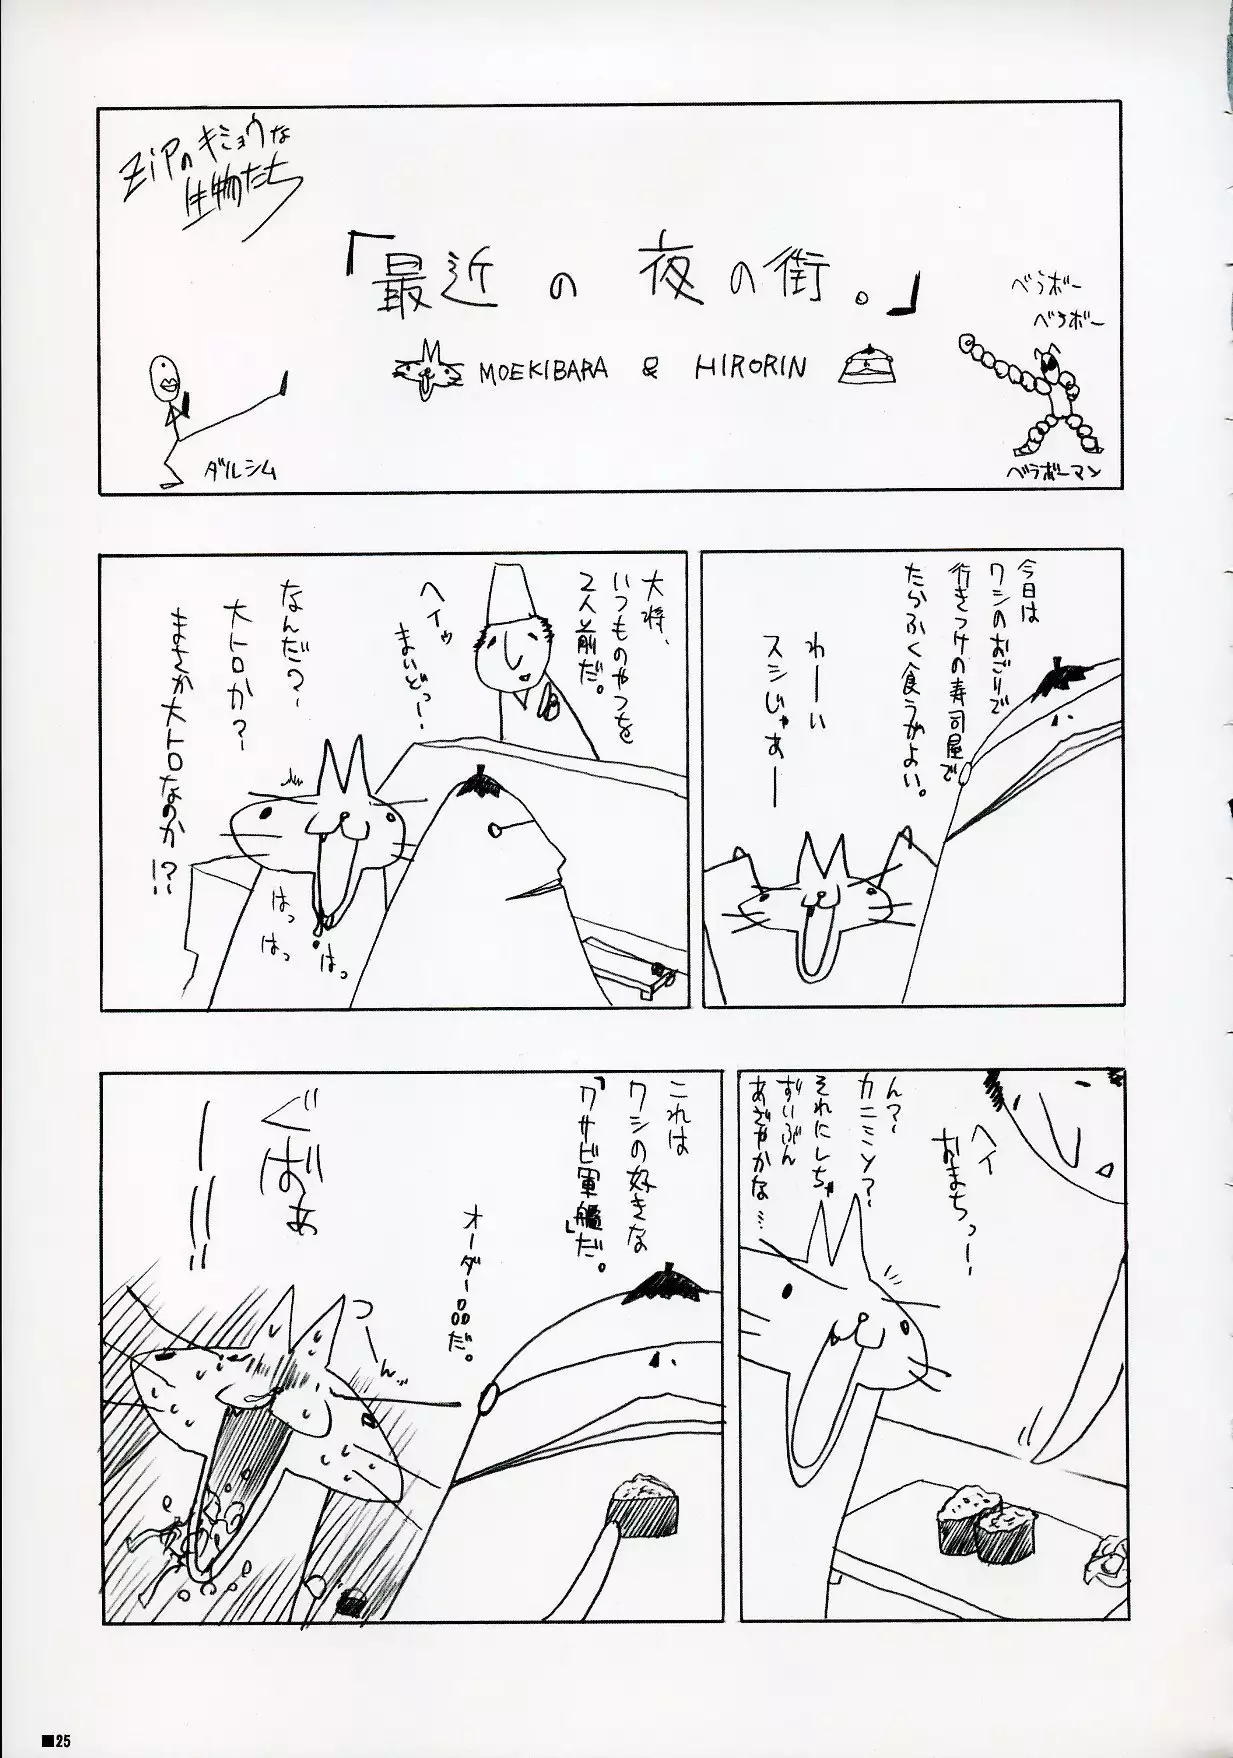 ZiPのキミョウな
生物たち
「最近の夜の街。」
MOEKIBARA & HIRORIN
ダルシム
ベラボー
ベラボー
ベラボーマン
今日は
ワシのおごりで
行きつけの寿司屋で
たらふく食うがよい。
わーい
スシじゃあー
大将、
いつものやつを
2人前だ。
ヘイゥ
まいどっー!
なんだ?
大トロか?
まさか大トロなのか!?
はっ
はっ
はっ
ヘイ
おまちっー
ん?
カニミソ?
それにしちゃ
ずいぶん
あざやかな…
これは
ワシの好きな
「ワサビ軍艦」だ。
オーダー品だ。
つーん
ぐばぁーーー!!
■25